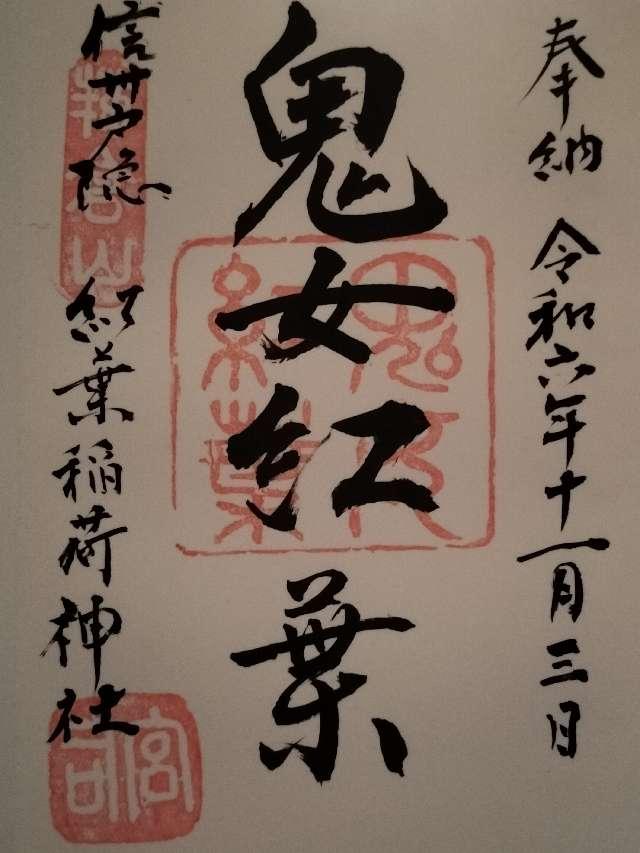 奉納 令和六年十一月三日
鬼女紅葉
鬼女
紅葉
信州戸隠 紅葉稲荷神社
倉山
宮司